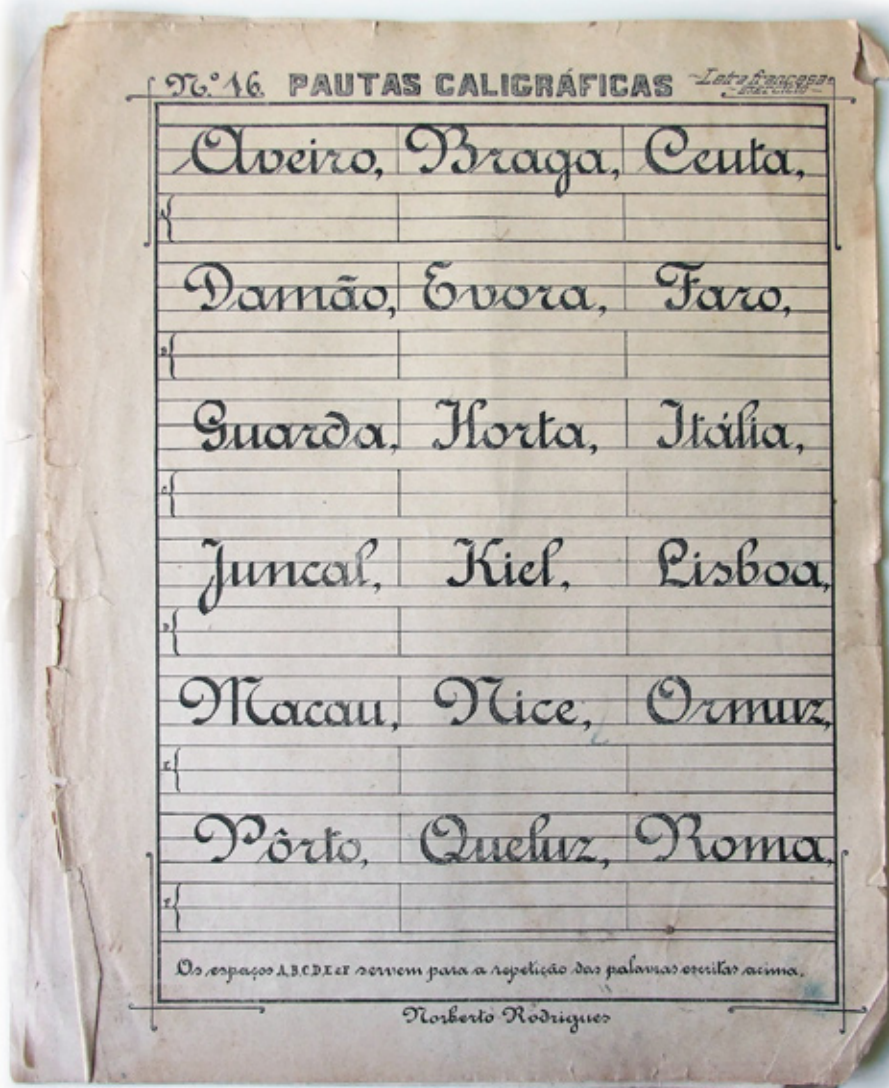 N.º 16. PAUTAS CALIGRÁFICAS Letra francesa
Exercício
Aveiro, Braga, Ceuta,
A
Damão, Evora, Faro,
B
Guarda, Horta, Itália,
C
Juncal, Kiel, Lisboa,
D
Macau, Nice, Ormuz,
E
Pôrto, Queluz, Roma,
F
Os espaços A, B, C, D, E e F servem para a repetição das palavras escritas acima.
Norberto Rodrigues